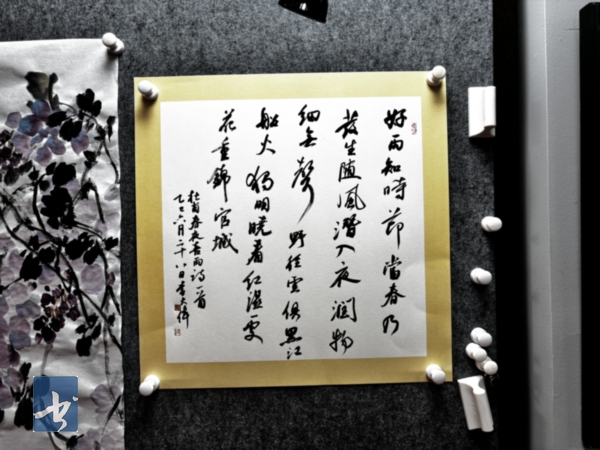 好雨知時節當春乃
發生随風潛入夜潤物
细無聲野径雲俱黑江
船火獨明曉看红濕處
花重錦官城
杜甫春夜喜雨诗一首
乙巳六月二十八日李大偉
书